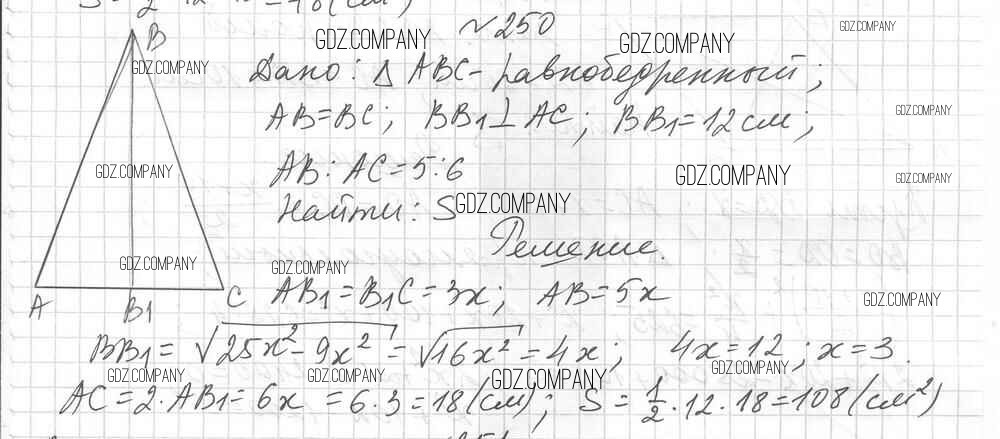 №250
Дано: △ ABC - равнобедренный;
AB=BC; BB1⊥AC; BB1=12см;
AB:AC=5:6
Найти: S
Решение.
AB1=B1C=3x; AB=5x
BB1=√25x²-9x²=√16x²=4x; 4x=12; x=3.
AC=2·AB1=6x=6·3=18(см); S=1/2·12·18=108(см²)
B
A
B1
C
GDZ.COMPANY
GDZ.COMPANY
GDZ.COMPANY
GDZ.COMPANY
GDZ.COMPANY
GDZ.COMPANY
GDZ.COMPANY
GDZ.COMPANY
GDZ.COMPANY
GDZ.COMPANY
GDZ.COMPANY
GDZ.COMPANY
GDZ.COMPANY
GDZ.COMPANY
GDZ.COMPANY
GDZ.COMPANY